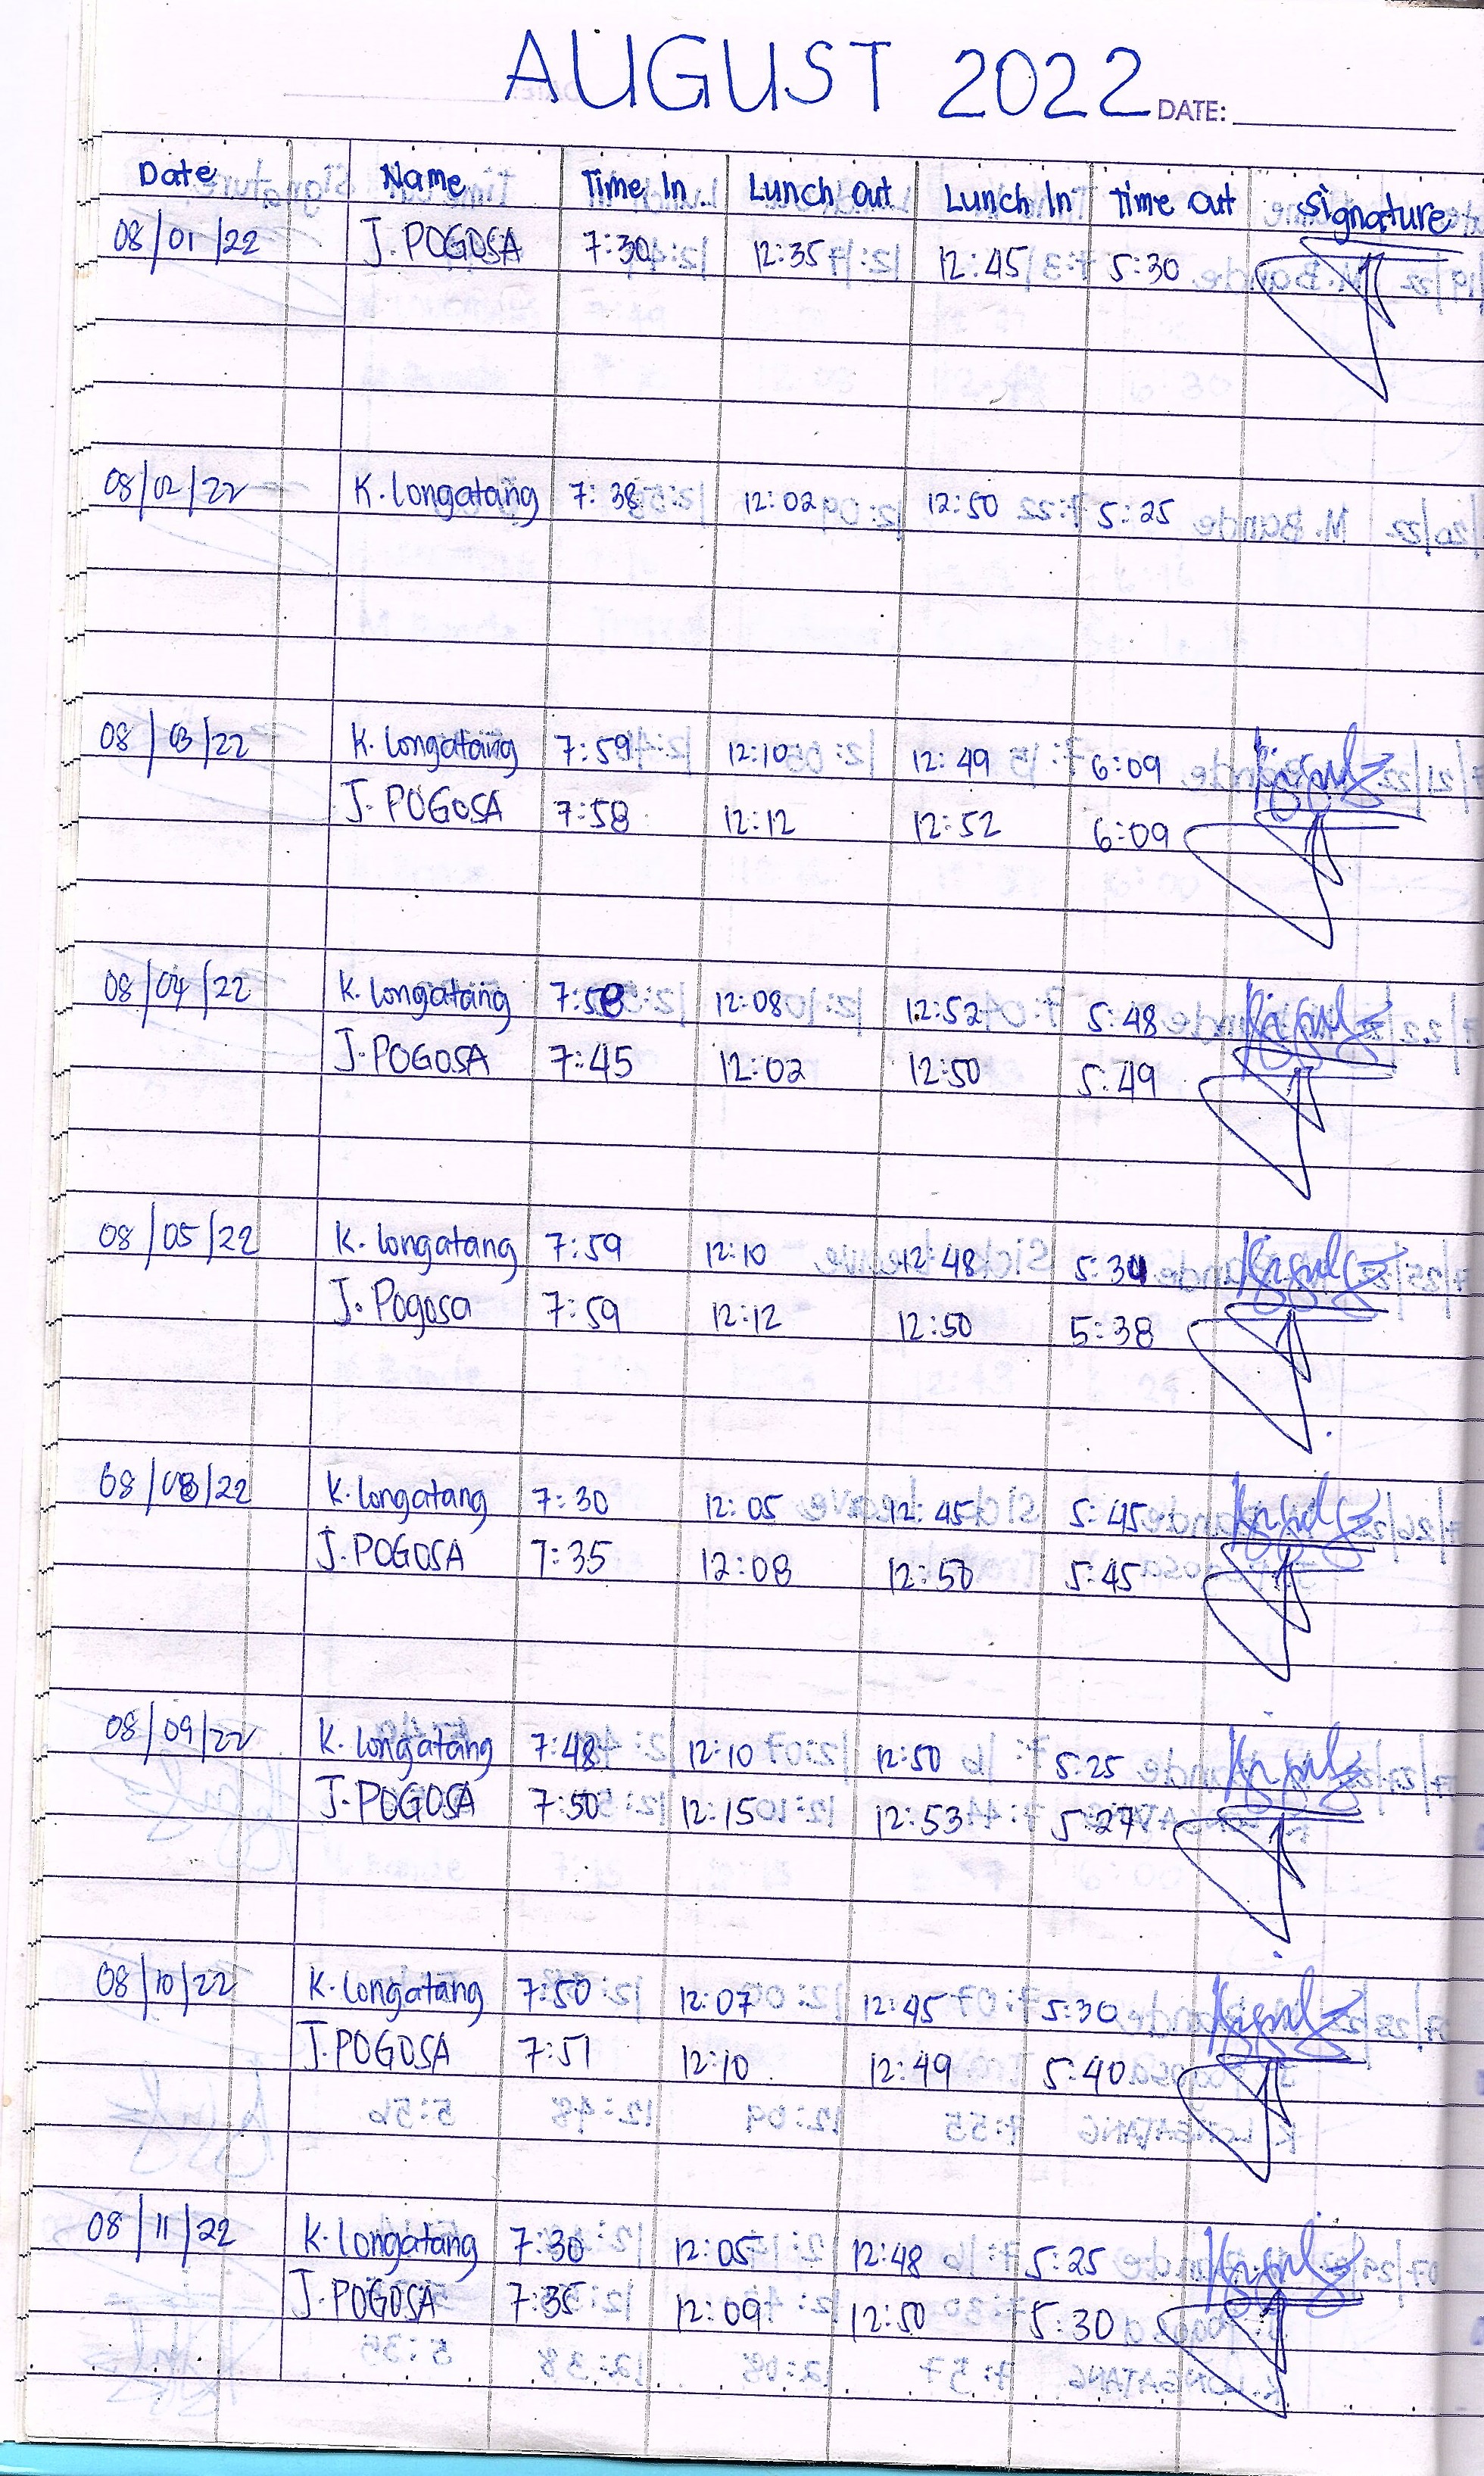 AUGUST 2022 DATE:
Date Name Time In Lunch Out Lunch In Time Out Signature
08/01/22 J. POGOSA 7:30 12:35 12:45 5:30
08/02/22 K. Longatang 7:38 12:02 12:50 5:25
08/03/22 K. Longatang 7:59 12:10 12:49 6:09
J. POGOSA 7:58 12:12 12:52 6:09
08/04/22 K. Longatang 7:58 12:08 12:52 5:48
J. POGOSA 7:45 12:02 12:50 5:49
08/05/22 K. Longatang 7:59 12:10 12:48 5:30
J. Pogosa 7:59 12:12 12:50 5:38
08/08/22 K. Longatang 7:30 12:05 12:45 5:45
J. POGOSA 7:35 12:08 12:50 5:45
08/09/22 K. Longatang 7:48 12:10 12:50 5:25
J. POGOSA 7:50 12:15 12:53 5:27
08/10/22 K. Longatang 7:50 12:07 12:45 5:30
J. POGOSA 7:51 12:10 12:49 5:40
08/11/22 K. Longatang 7:30 12:05 12:48 5:25
J. POGOSA 7:35 12:09 12:50 5:30